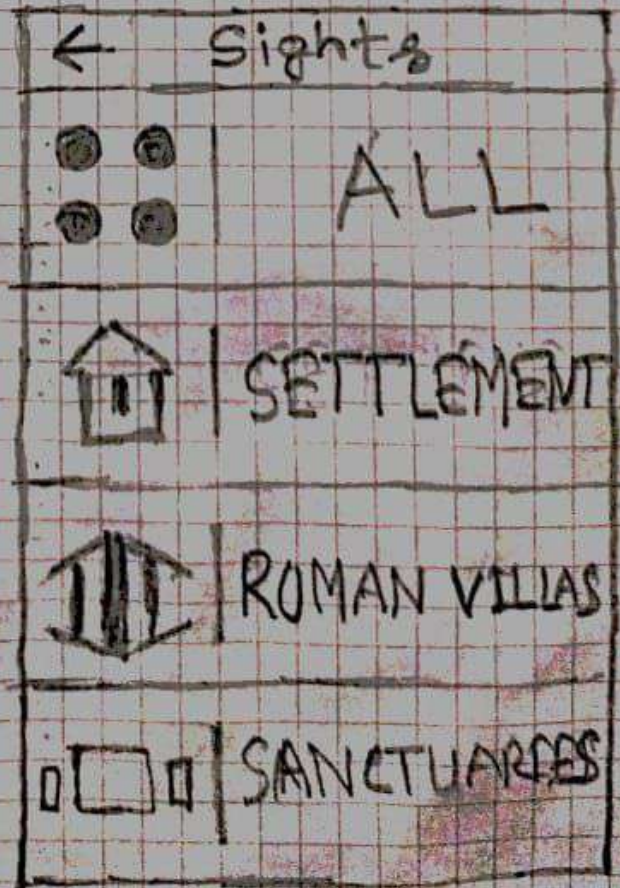 ← Sights
ALL
SETTLEMENT
ROMAN VILLAS
SANCTUARIES